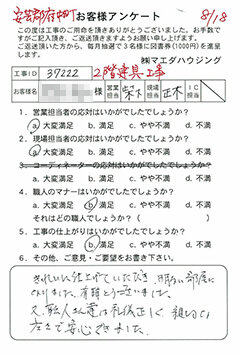 安芸郡府中町 お客様アンケート 8/18
この度は工事のご用命を頂きありがとうございました。お手数で
すがご記入頂き、ご返送頂きますようお願い申し上げます。
ご返送頂いた方から、毎月抽選で3名様に図書券(1000円)を進呈
します。
㈱マエダハウジング
工事ID 37222 2階建具工事
お客様名 様 営業担当 柴木 現場担当 正木 IC担当
1. 営業担当者の応対はいかがでしたでしょうか?
a 大変満足 b. 満足 c. やや不満 d. 不満
2. 現場担当者の応対はいかがでしたでしょうか?
a 大変満足 b. 満足 c. やや不満 d. 不満
3. コーディネーターの応対はいかがでしたでしょうか?
a. 大変満足 b. 満足 c. やや不満 d. 不満
4. 職人のマナーはいかがでしたでしょうか?
a. 大変満足 b 満足 c. やや不満 d. 不満
それはどの職人でしょうか? ( )
5. 工事の仕上がりはいかがでしたでしょうか?
a. 大変満足 b 満足 c. やや不満 d. 不満
6. その他、ご意見・ご要望をお書き下さい。
きれいに仕上げていただき、明るい部屋に
なりました。有難とうございました。
又、職人さん達は礼儀正しく
安心できました。